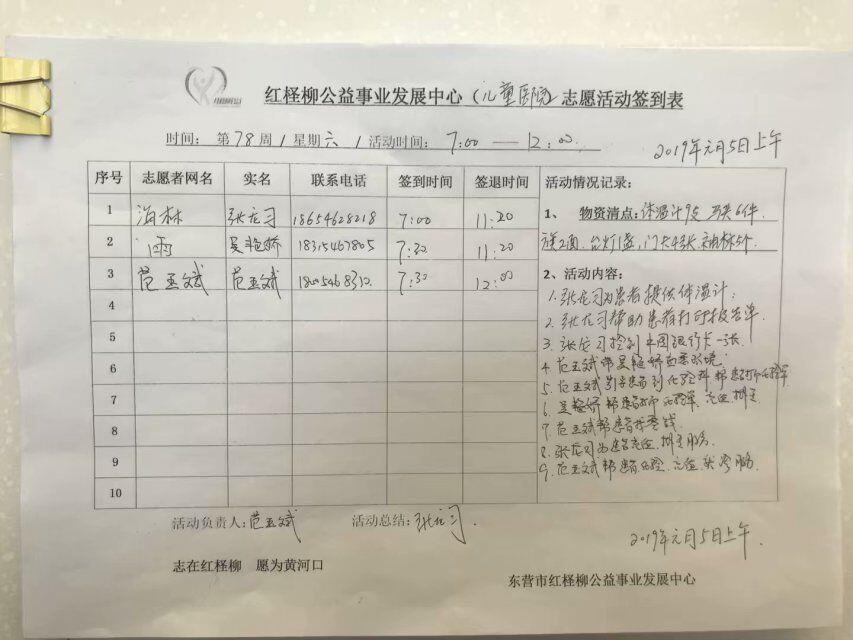 红柽柳公益事业发展中心(儿童医院)志愿活动签到表
时间: 第78周/星期六/活动时间: 7:00—12:00
2019年元月5日上午
序号 志愿者网名 实名 联系电话 签到时间 签退时间 活动情况记录:
1 海林 18654628218 7:00 11:20
1、 物资清点:体温计9支 马夹6件
2 雨 吴艳娇 18315467805 7:30 11:20
旗2面.台灯1盏,门卡4张.袖标5个.
3 范玉斌 范玉斌 18005468312 7:30 12:00
2、活动内容:
1.张龙习为患者提供体温计.
4
2.张龙习帮助患者打印报告单.
5
3.张龙习捡到中国银行卡一张
6
4.范玉斌带吴艳娇熟悉环境.
5.范玉斌引导患者到化验科帮患者打印化验单
7
6.吴艳娇帮患者打印化验单.充值.挂号
7.范玉斌帮患者找零钱
8
8.张龙习为患者充值.挂号服务
9
9.范玉斌帮患者化验.充值.服务.
10
活动负责人:范玉斌 活动总结:张龙习.
2019年元月5日上午.
志在红柽柳 愿为黄河口
东营市红柽柳公益事业发展中心